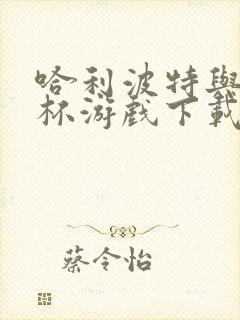 哈利波特與
杯游戲下載
蔡令怡